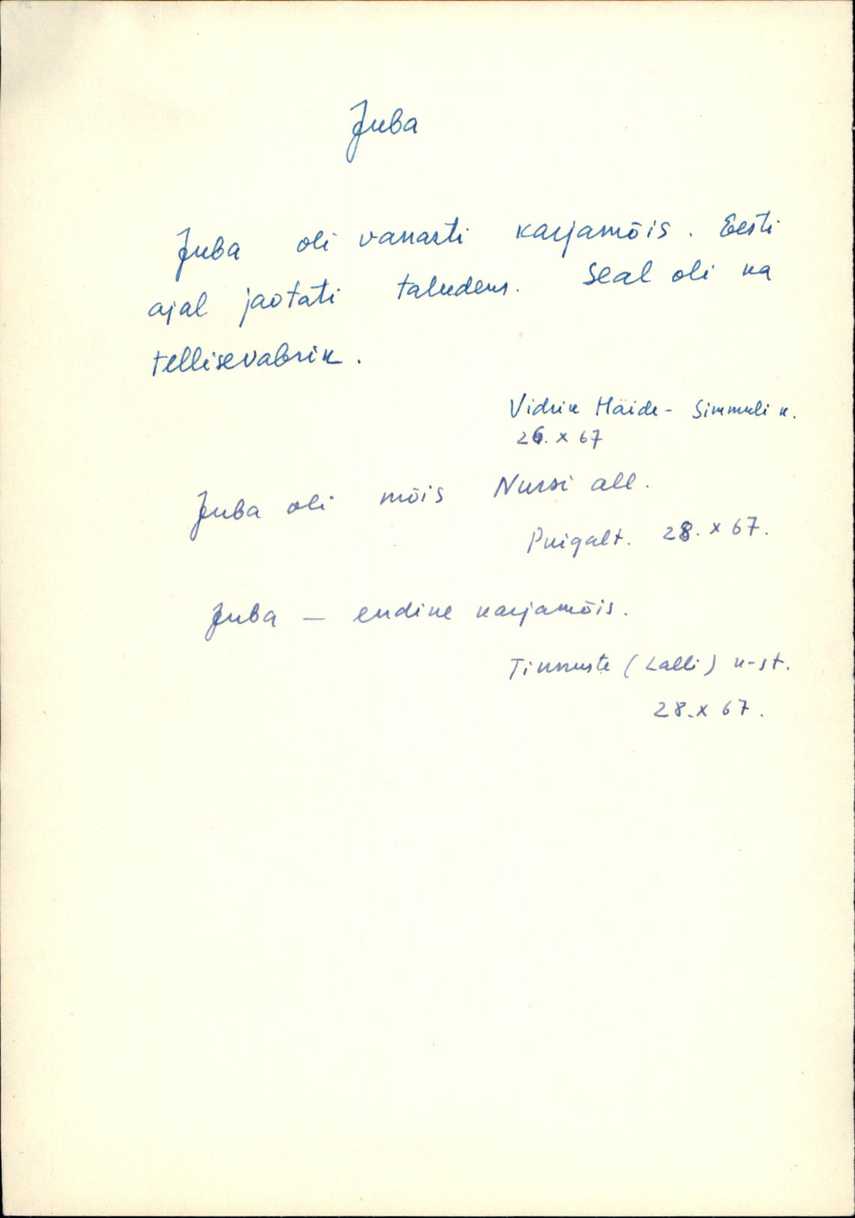 Juba
Juba oli vanasti karjamõis. Eesti
ajal jaotati taludeks. Seal oli ka
tellisevabrik.
Vidrik Maide - Simmuli k.
26. X 67
Juba oli mõis Nursi all.
Puigalt. 28. X 67.
Juba – endine karjamõis.
Tinnuste (Lalli) k-st.
28. X 67.